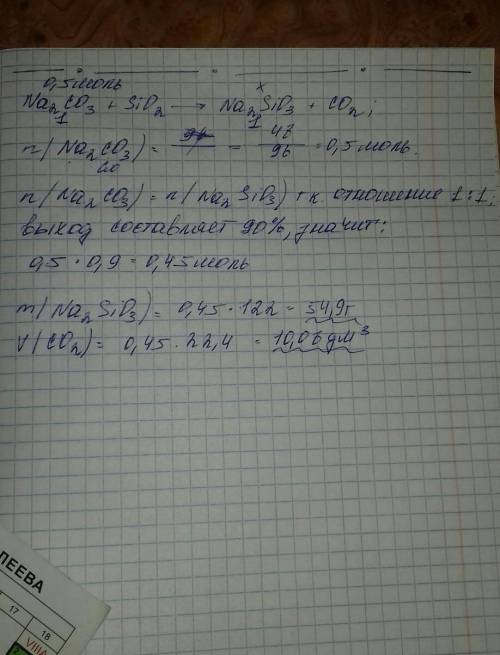 0,5 моль x
Na₂CO₃ + SiO₂ → Na₂SiO₃ + CO₂;
1 1
n(Na₂CO₃) = = 48/96 = 0,5 моль.
n(Na₂CO₃) = n(Na₂SiO₃) т.к отношение 1:1;
выход составляет 90%, значит:
0,5 · 0,9 = 0,45 моль
m(Na₂SiO₃) = 0,45 · 122 = 54,9г
V(CO₂) = 0,45 · 22,4 = 10,08 дм³
ЛЕЕВА
17
18
VIIIA